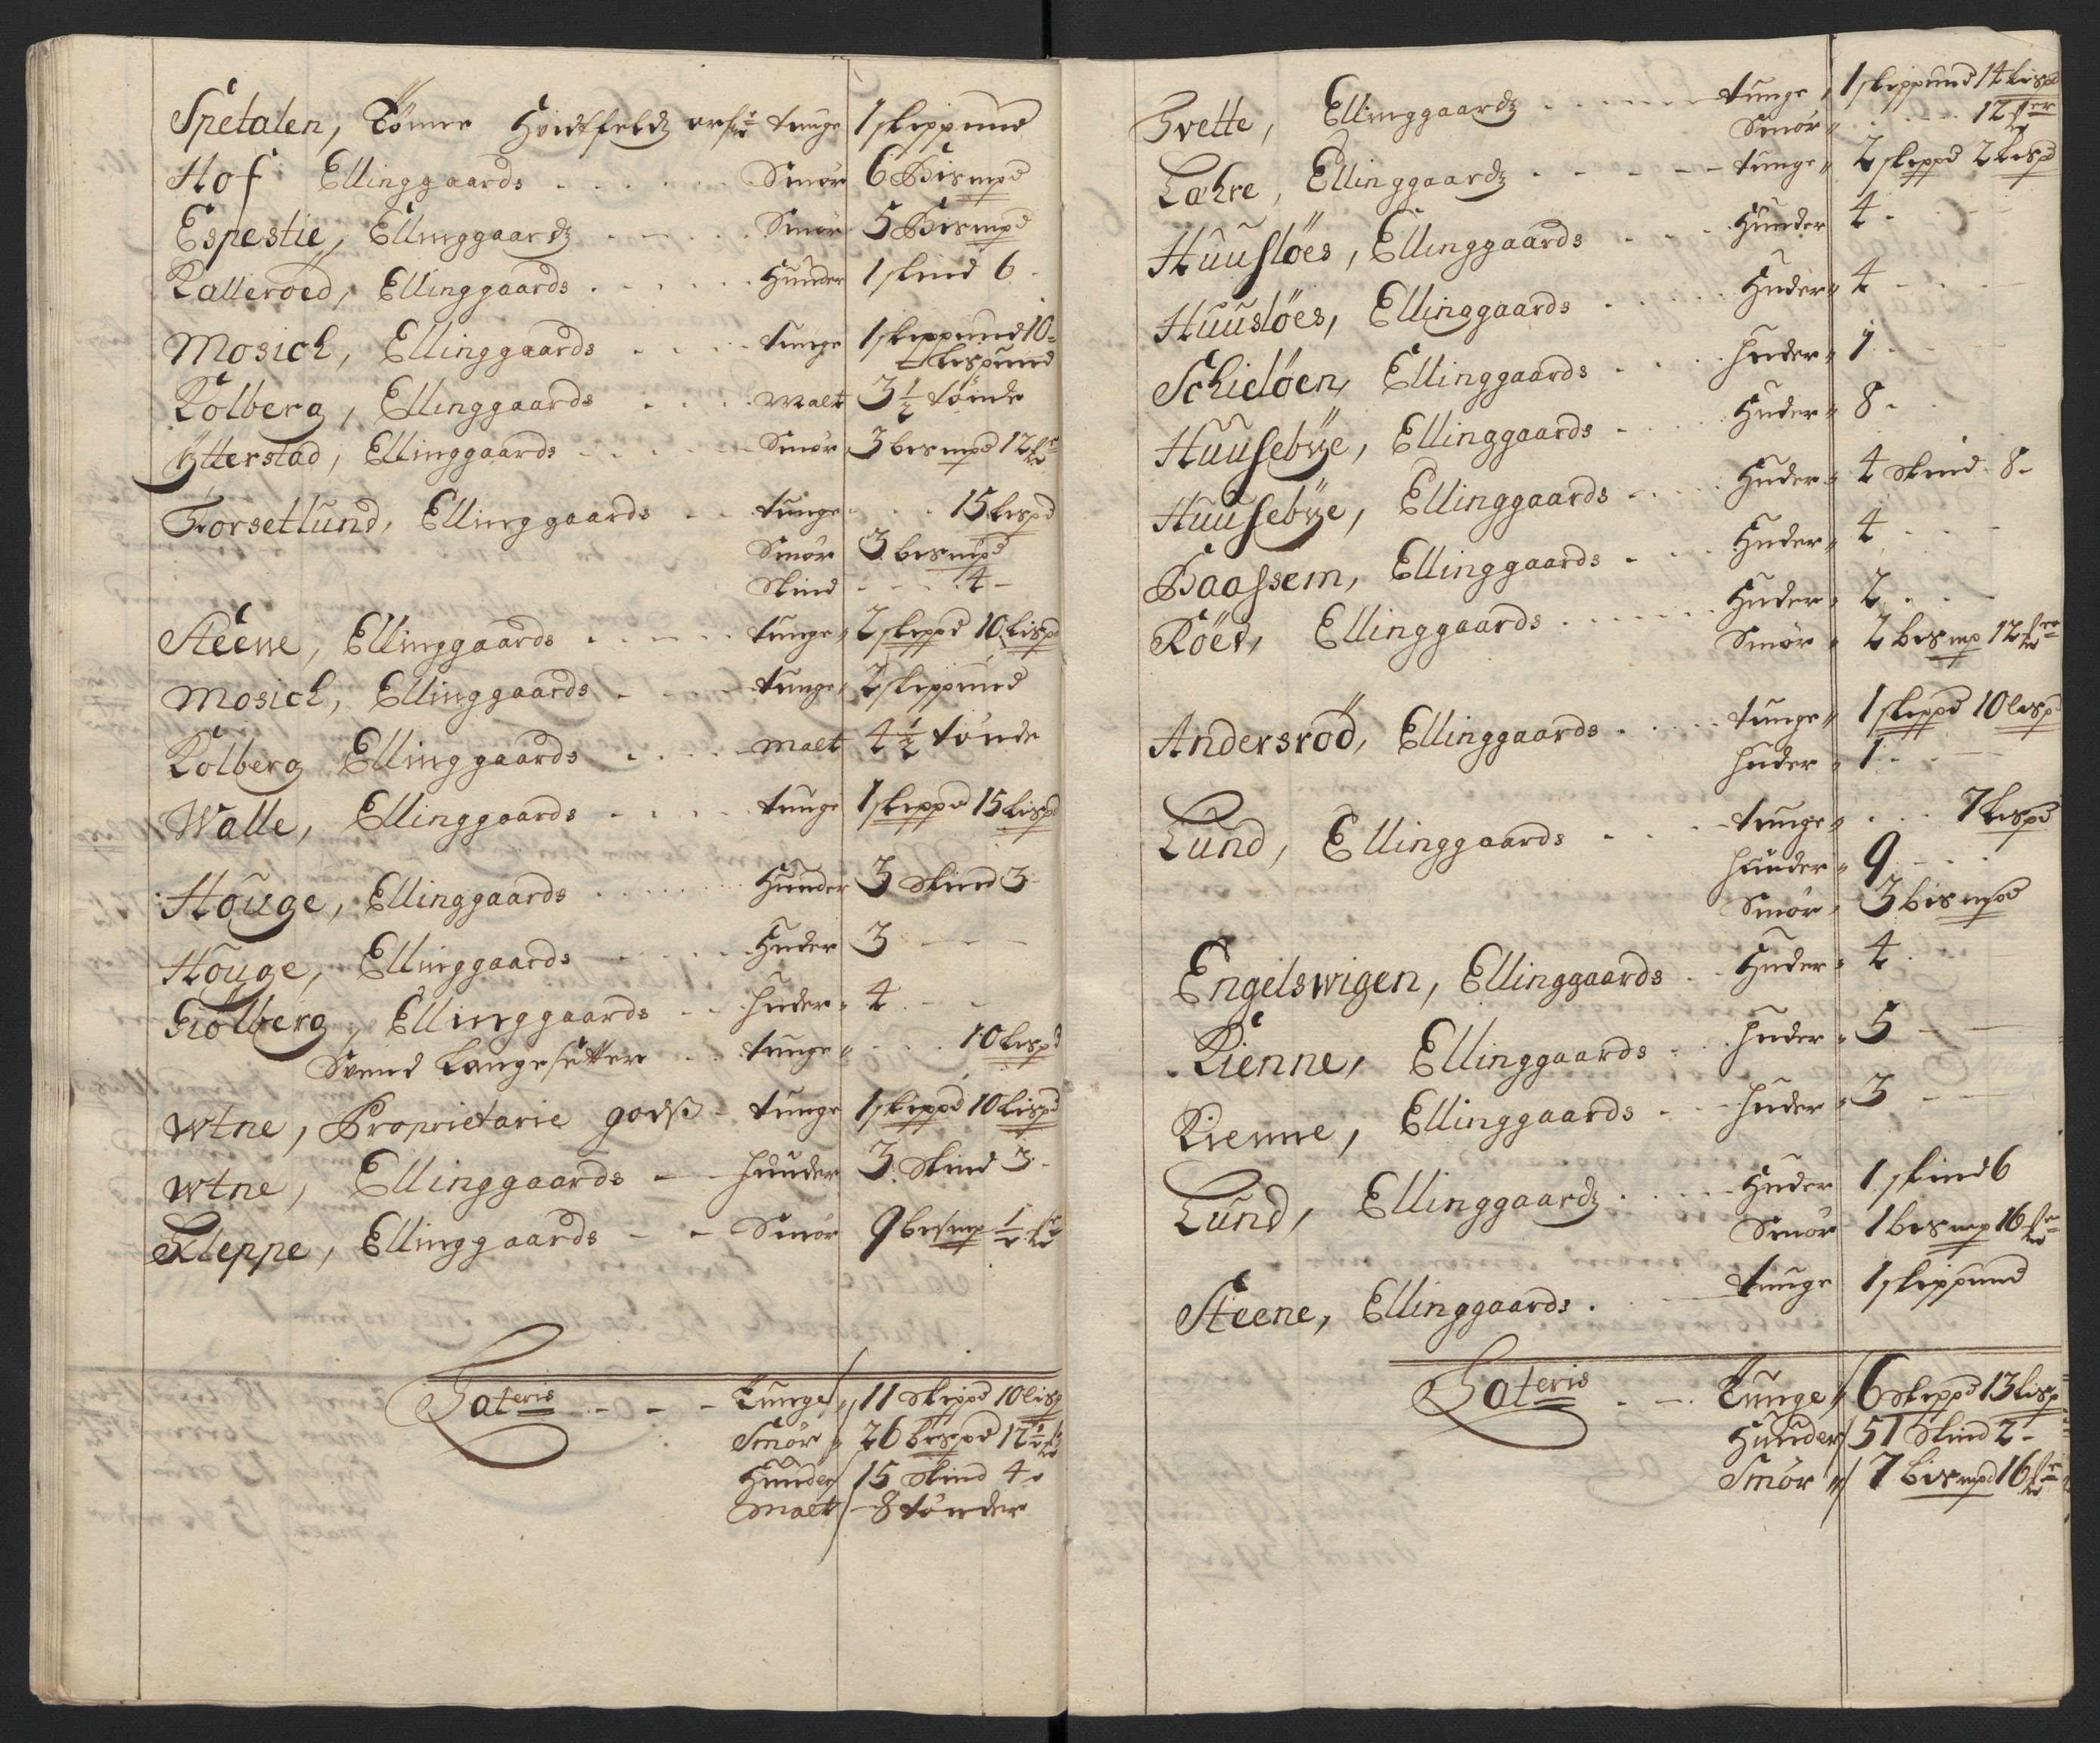 Spetalen, Tönne Hvidtfeldz arf: tunge 1 skippund
Hof Ellinggaards . . . . . . Smör 6 Bismpd
Espestie, Ellinggaardz . . . . Smör 5 Bismpd
Kalleröed, Ellinggaards . . . . . . Huuder 1 skind 6.
Mosich, Ellinggaards . . . . tunge 1 skippund 10
Lispund
Kolberg, Ellinggaards . . . . Malt 3½ tönde
Ytterstad, Ellinggaards . . . . . . Smör 3 bismpd 12
Torsetlund, Ellinggaards . . tunge . . . 15 Lispd
Smör 3 bismpd
Skind - - - 4 -
Steene, Ellinggaards . . . . . tunge 2 skippd 10 Lispd
Mosich, Ellinggaards . . . tunge 2 skippund
Kolberg Ellinggaards . . . . malt 4½ tönde
Walle, Ellinggaards . . . . tunge 1 skippd 15 Lispd
Houge, Ellinggaards . . . . . . Huuder 3 Skind 3
Houge, Ellinggaards . . . . . Huder 3 - - -
Giölberg, Ellinggaards . . huder 4 - -
Svend Langesetter . . tunge . . . 10 Lispd
Wtne, Proprietarie godß - tunge 1 skippd 10 Lispd
Wtne, Ellinggaards - - huuder 3 Skind 3 -
Kleppe, Ellinggaards - - Smör 9 bismp ½
Lateris - - - Tunge 11 Skippd 10 Lisp
Smör 26 bispd 12
Huuder 15 Skind 4
Malt 8 tönder
Tvette, Ellinggaardz . . . . . . tunge 1 skippund 14 Lispd
Smör . . . . . 12
Læhre, Ellinggaardz . . . . . tunge 2 skippd 2 Lispd
Huuslöes, Ellinggaards . . . . Huuder 4 -
Huuslöes, Ellinggaards . . . . . Huder 4 - - -
Schielöen, Ellinggaards . . . . huder 1 - -
Huusebÿe, Ellinggaards . . . . Huder 8 -
Huusebÿe, Ellinggaards . . . . Huder 4 Skind 8 -
Baassem, Ellinggaards . . . . Huder 4 - - -
Röed, Ellinggaards . . . . . . Huder 2 - -
Smör 2 bismp 12
Andersröd, Ellinggaards . . . . . tunge 1 skippd 10 Lisp
huder 1 - -
Lund, Ellinggaards . . . . tunge . . . 7 Lispd
huuder 9 - -
Smör 3 bismpd
Engelswigen, Ellinggaards . . Huder 4 - -
Kienne, Ellinggaards . . . huder 5 - -
Kienne, Ellinggaards . . . huder 3 - -
Lund, Ellinggaardz . . . . . Huder 1 skind 6
Smör 1 bismp 16
Steene, Ellinggaards . . . . tunge 1 skippund
Lateris . . . Tunge 6 Skippd 13 Lisp
Huuder 51 Skind 2 -
Smör 7 bismpd 16